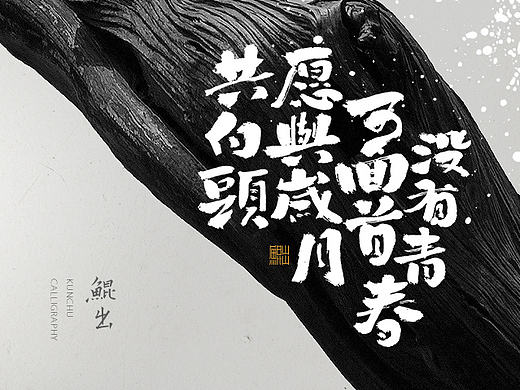 没有青春
可回首
愿與歲月
共白頭
鯤出
KUNCHU
CALLIGRAPHY